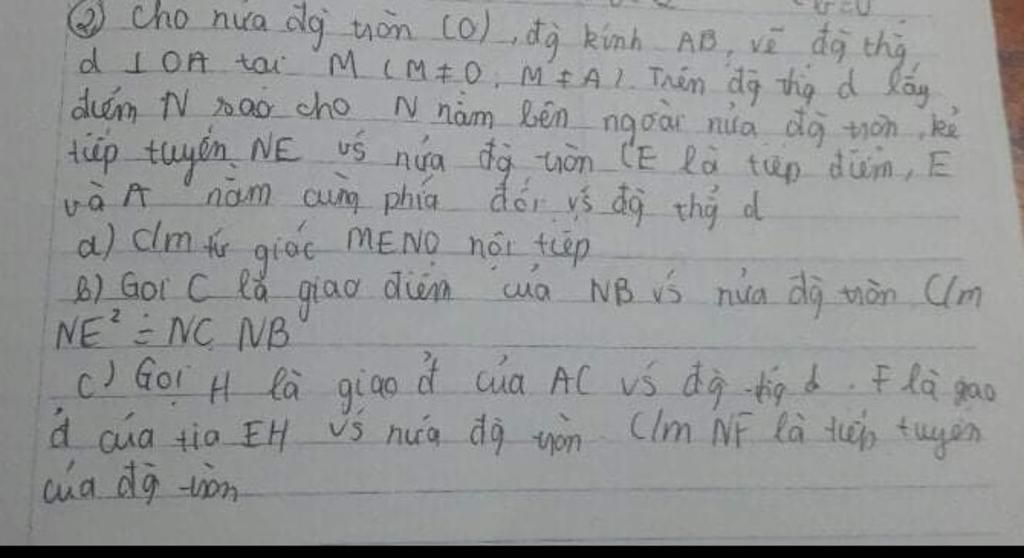 ② Cho nửa đg tròn (O), đg kính AB, vẽ đg thg
d ⊥ OA tại M (M ≠ O, M ≠ A). Trên đg thg d lấy
điểm N sao cho N nằm bên ngoài nửa đg tròn, kẻ
tiếp tuyến NE vs nửa đg tròn (E là tiếp điểm, E
và A nằm cùng phía đối vs đg thg d
a) C/m tứ giác MENO nội tiếp
b) Gọi C là giao điểm của NB vs nửa đg tròn C/m
NE² = NC NB
c) Gọi H là giao đ của AC vs đg thg d. F là giao
đ của tia EH vs nửa đg tròn C/m NF là tiếp tuyến
của đg tròn